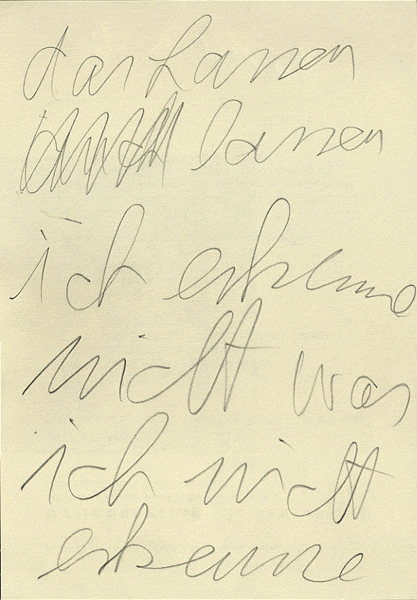 das
lassen
ich erkenne
nicht was
ich nicht
erkenne